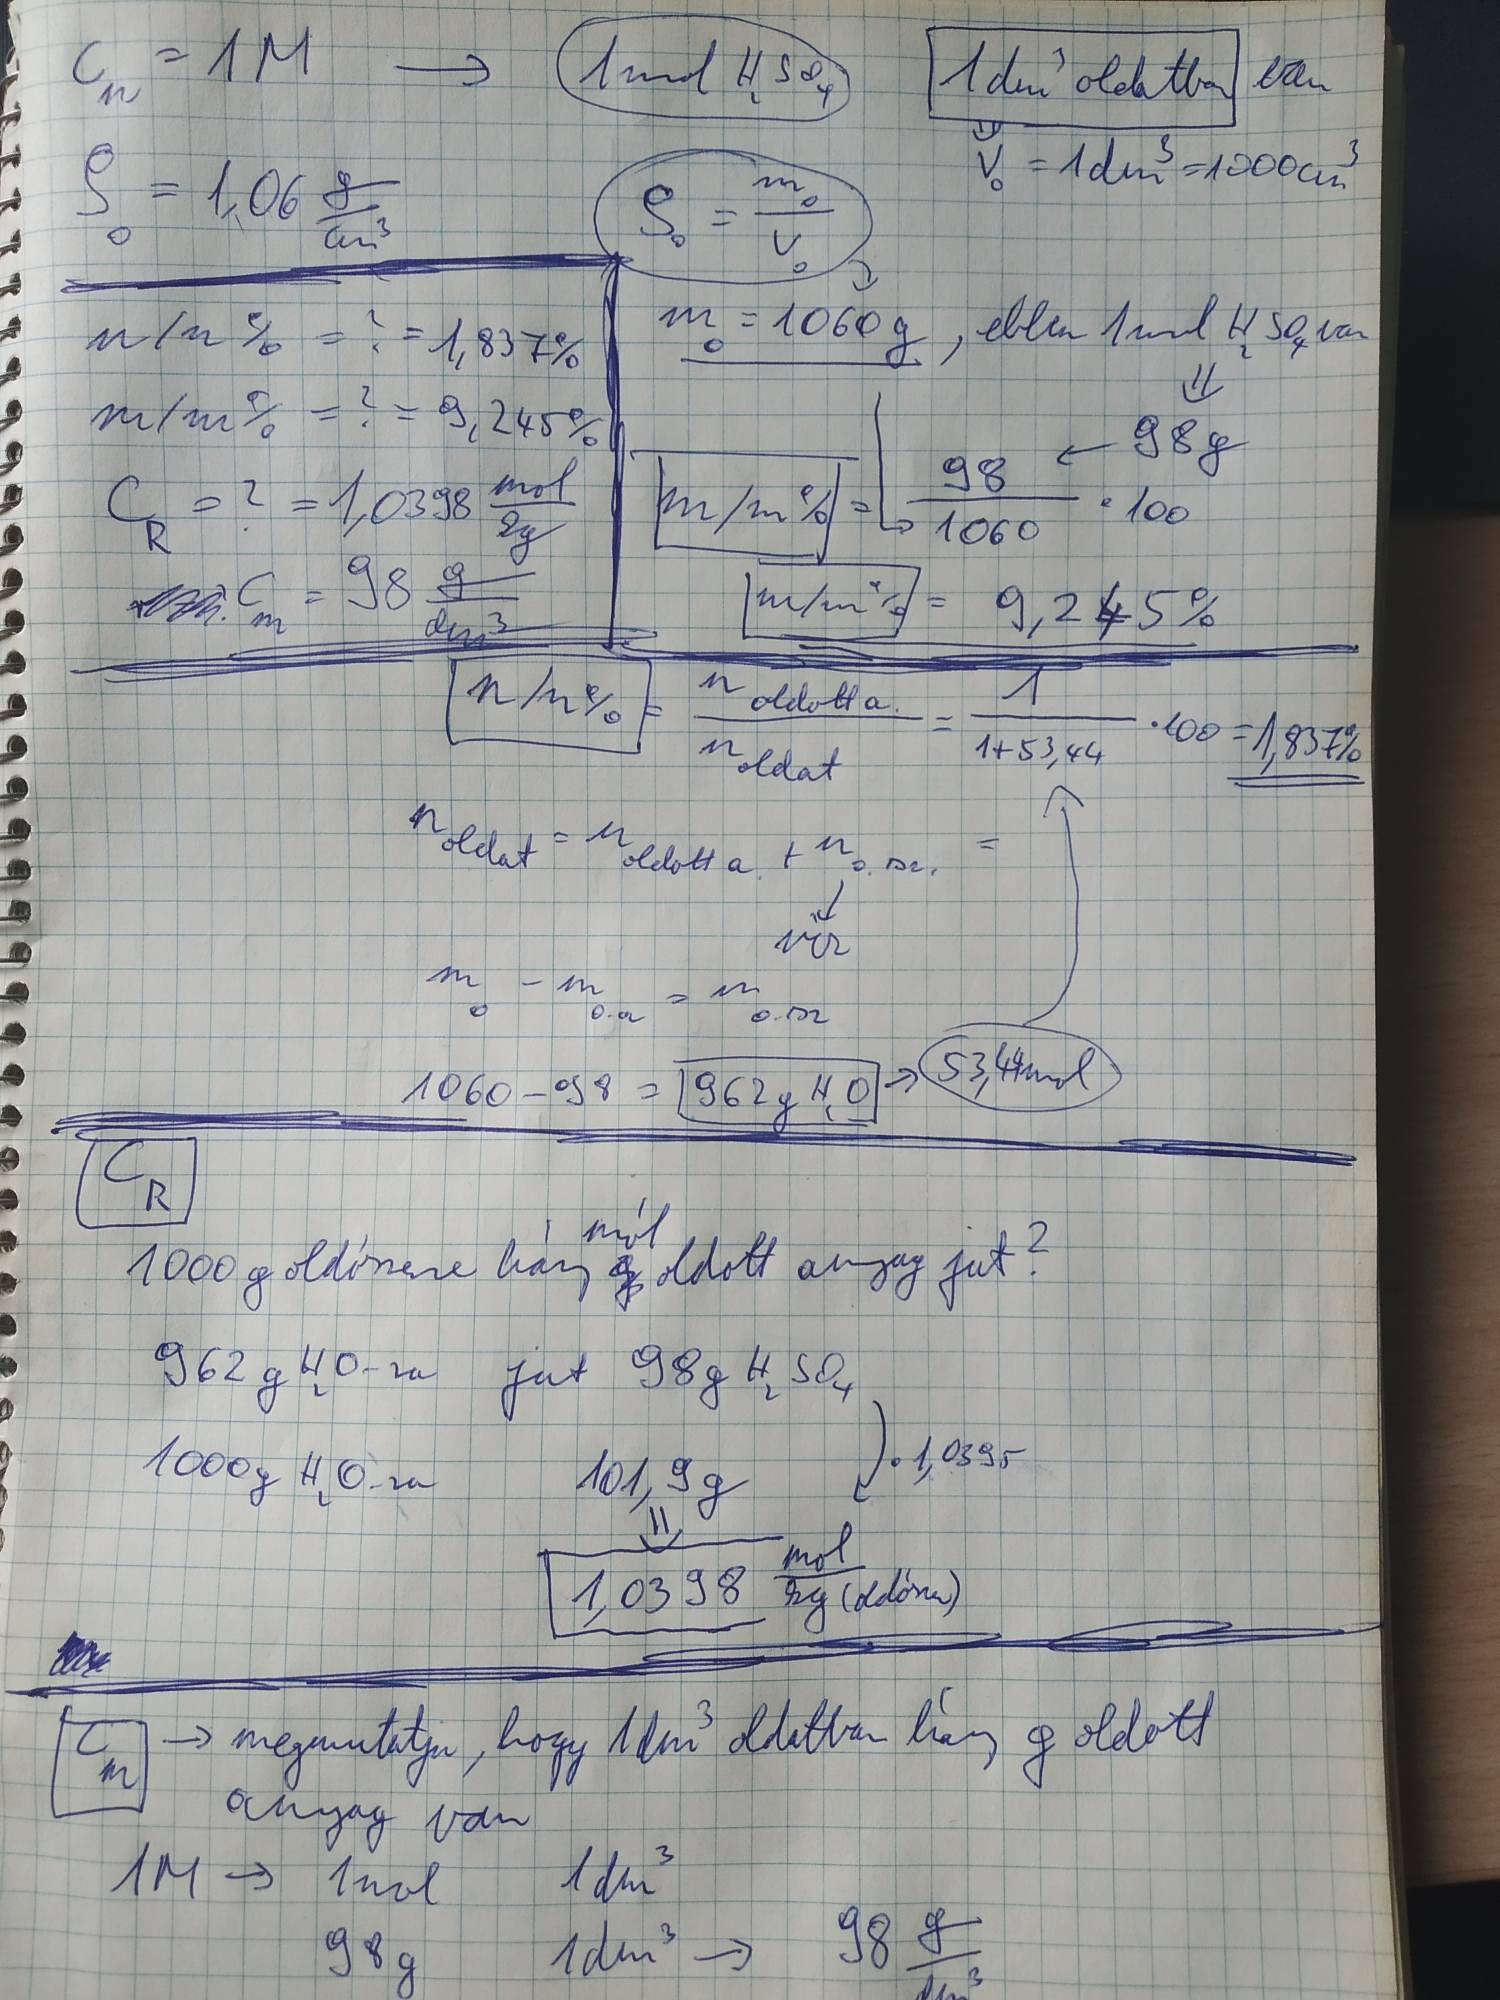 Cn = 1M → 1mol H2SO4 1dm³ oldatban van
V0 = 1dm³ = 1000cm³
ρ0 = 1,06 g/cm³
ρ0 = m0/V0
n/n% = ? = 1,837%
m0 = 1060g, ebben 1mol H2SO4 van
m/m% = ? = 9,245%
98g
m/m% = 98/1060 · 100
CR = ? = 1,0398 mol/kg
Cm = 98 g/dm³
m/m% = 9,245%
n/n% = n oldott a. / n oldat = 1/(1+53,44) · 100 = 1,837%
n oldat = n oldott a. + n o.sz. =
víz
m0 - m o.a = m o.sz
1060 - 98 = 962g H2O → 53,44mol
CR
mól
1000g oldószerre hány oldott anyag jut?
962g H2O-ra jut 98g H2SO4
· 1,0395
1000g H2O-ra 101,9g
1,0398 mol/kg (oldószer)
Cm → megmutatja, hogy 1dm³ oldatban hány g oldott
anyag van
1M → 1mol 1dm³
98g 1dm³ → 98 g/dm³